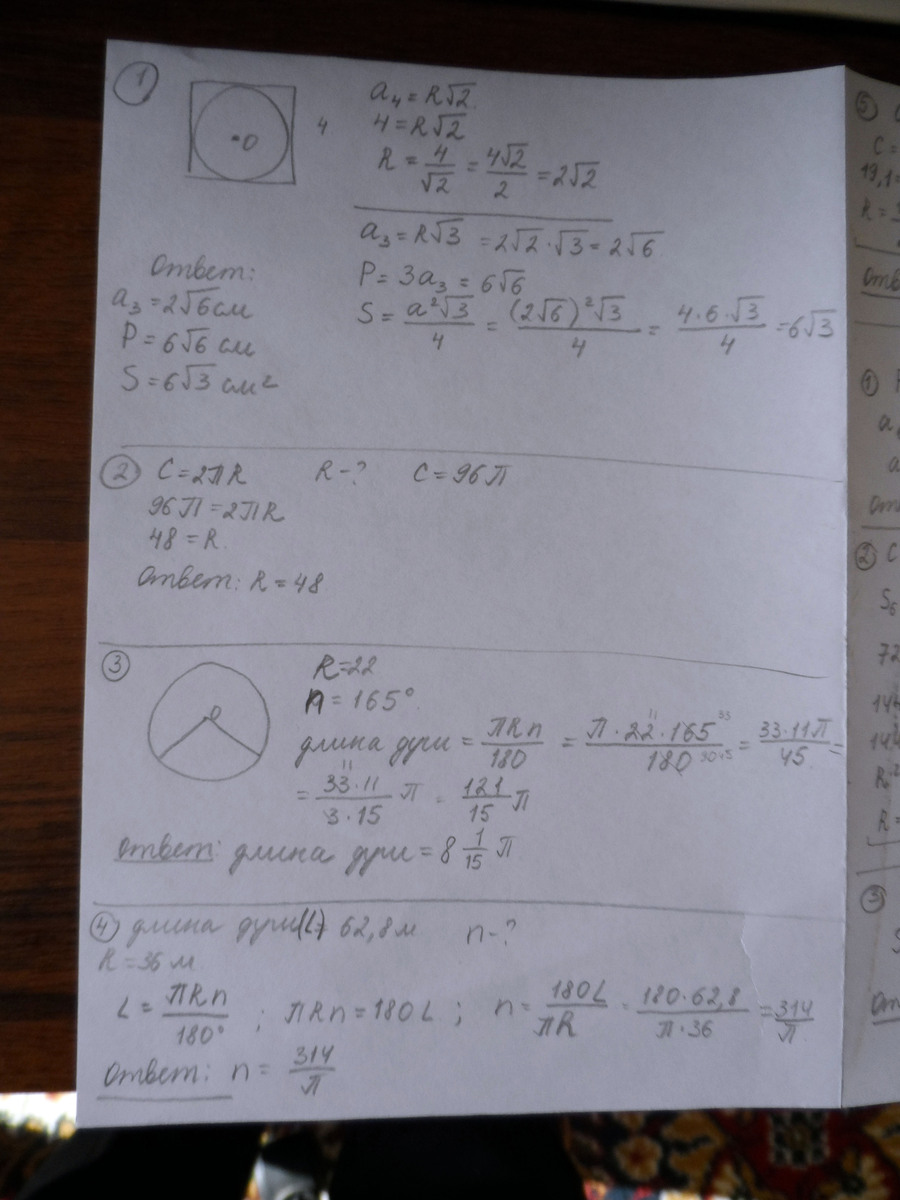 ①
O
4
a₄ = R√2.
4 = R√2
R = 4/√2 = 4√2/2 = 2√2
a₃ = R√3 = 2√2 · √3 = 2√6.
P = 3a₃ = 6√6
S = a²√3/4 = (2√6)²√3/4 = 4·6·√3/4 = 6√3
Ответ:
a₃ = 2√6 см
P = 6√6 см
S = 6√3 см²
② C = 2πR R - ? C = 96π
96π = 2πR
48 = R.
Ответ: R = 48
③
O
R = 22
n = 165°.
длина дуги = πRn/180 = π·22·165/180 = 33·11π/45 =
= 33·11/3·15 π = 121/15 π
Ответ: длина дуги = 8 1/15 π
④ длина дуги(L) = 62,8 м n - ?
R = 36 м
L = πRn/180° ; πRn = 180L ; n = 180L/πR = 180·62,8/π·36 = 314/π
Ответ: n = 314/π
⑤
C =
19,1
R =
①
a
a
②  C
S₆
72
144
R²
R =
③
S